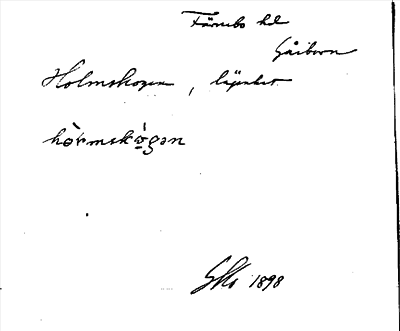 Färnebo hd
Gåsborn
Holmskogen, lägenhet
hòrmskó̠gən
SHs 1898